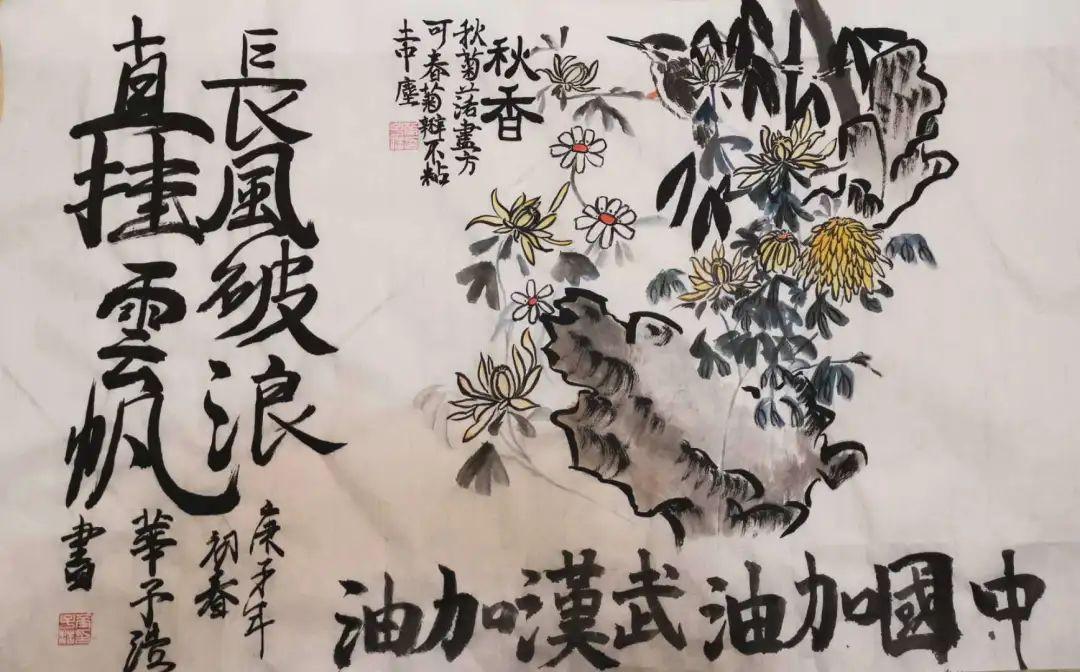 秋香
秋菊落盡方
可春菊瓣不粘
塵
長風破浪
直挂雲帆
庚子年
初春
華子
書
中國加油武漢加油